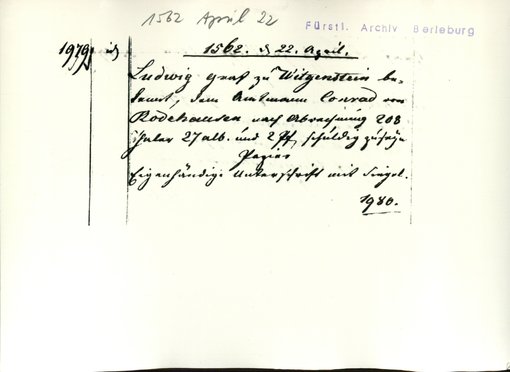 1562 April 22
Fürstl. Archiv Berleburg
1979
1562. d 22. April.
Ludwig Graf zu Witgenstein be-
kennt, dem Amtmann Conrad von
Rodehausen nach Abrechnung 208
thaler 27 alb. und 2 Pf schuldig zu seyn
Papier
Eigenhändige Unterschrift mit Siegel.
1980.